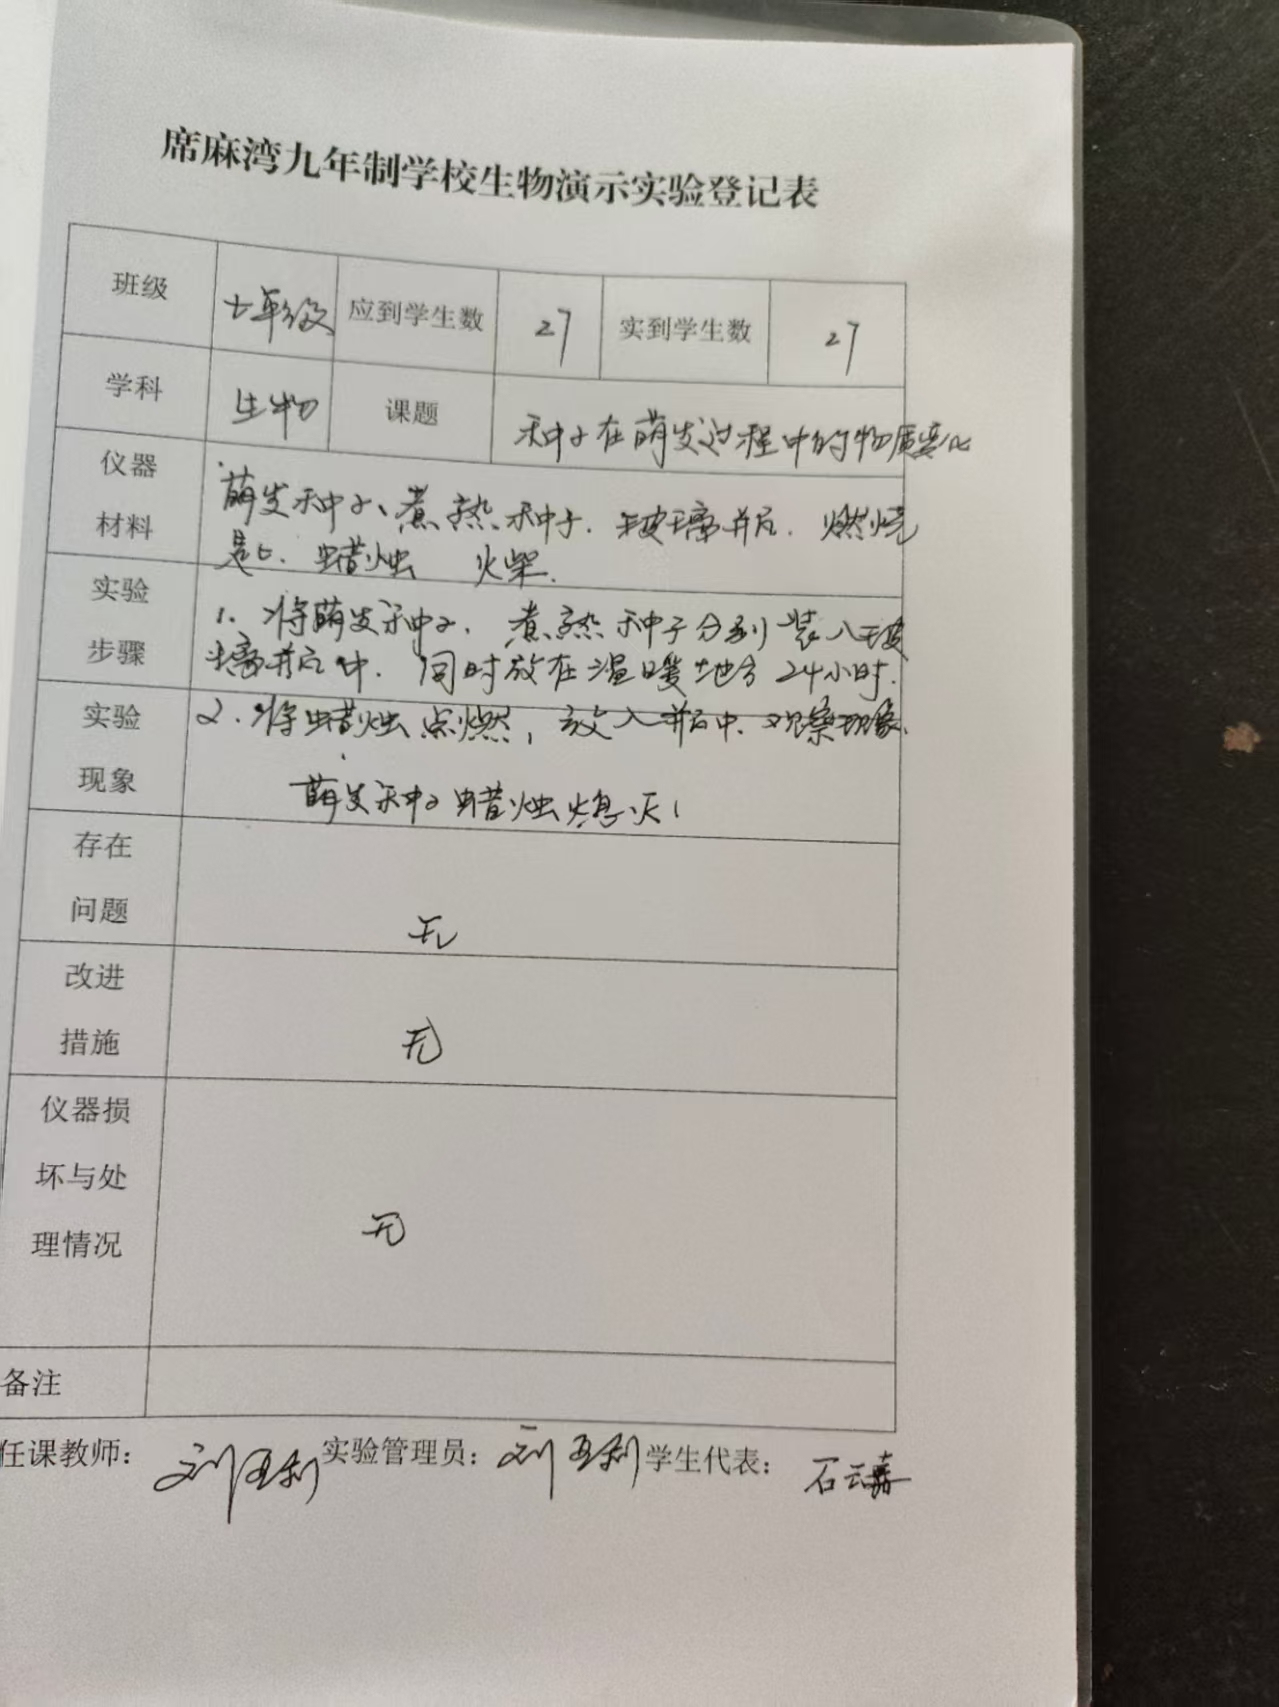 席麻湾九年制学校生物演示实验登记表
班级 七年级 应到学生数 27 实到学生数 27
学科 生物 课题 种子在萌发过程中的物质变化
仪器
材料
萌发种子、煮熟种子.玻璃瓶.燃烧
匙.蜡烛 火柴.
实验
步骤
1.将萌发种子.煮熟种子分别装入玻
璃瓶中.同时放在温暖地方24小时.
2.将蜡烛点燃,放入瓶中.观察现象.
实验
现象
萌发种子蜡烛熄灭
存在
问题
无
改进
措施
无
仪器损
坏与处
理情况
无
备注
任课教师: 实验管理员: 学生代表: 石